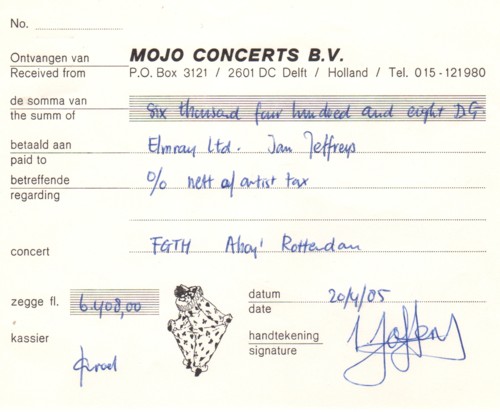 No.
Ontvangen van MOJO CONCERTS B.V.
Received from P.O. Box 3121 / 2601 DC Delft / Holland / Tel. 015 - 121980
de somma van
the summ of six thousand four hundred and eight DG
betaald aan
paid to Elmray Ltd. Jan Jeffreys
betreffende
regarding % nett of artist tax
concert FGTH Ahoy' Rotterdam
zegge fl. 6.408,00
datum
date 20/4/05
kassier
handtekening
signature